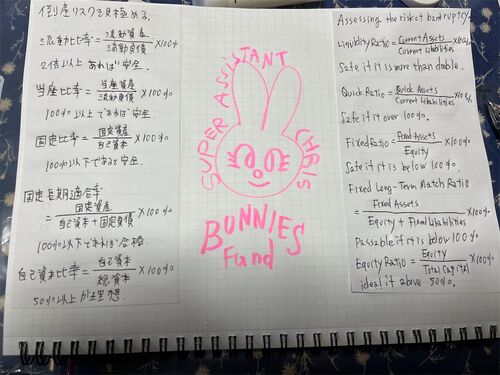 倒産リスクを見極める。
流動比率=流動資産/流動負債×100%
2倍以上あれば安全.
当座比率=当座資産/流動負債×100%
100%以上であれば安全.
固定比率=固定資産/自己資本×100%
100%以下であると安全.
固定長期適合率
=固定資産/自己資本+固定負債×100%
100%以下であれば合格.
自己資本比率=自己資本/総資本×100%
50%以上が理想.
SUPER ASSISTANT
CHRIS
BUNNIES
Fund
Assessing the risk of bankruptcy.
Liquidity Ratio=Current Assets/Current Liabilities×100%
Safe if it is more than double.
Quick Ratio=Quick Assets/Current Liabilities×100%
Safe if it over 100%.
Fixed Ratio=Fixed Assets/Equity×100%
Safe if it is below 100%.
Fixed Long-Term Match Ratio
=Fixed Assets/Equity+Fixed Liabilities×100%
Passable if it is below 100%
Equity Ratio=Equity/Total Capital×100%
ideal if above 50%.